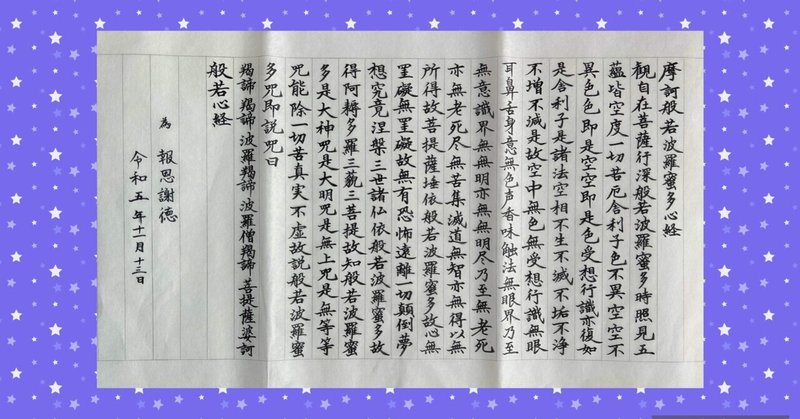 摩訶般若波羅蜜多心経
観自在菩薩行深般若波羅蜜多時照見五
蘊皆空度一切苦厄舎利子色不異空空不
異色色即是空空即是色受想行識亦復如
是舎利子是諸法空相不生不滅不垢不浄
不増不減是故空中無色無受想行識無眼
耳鼻舌身意無色声香味触法無眼界乃至
無意識界無無明亦無無明尽乃至無老死
亦無老死尽無苦集滅道無智亦無得以無
所得故菩提薩埵依般若波羅蜜多故心無
罣礙無罣礙故無有恐怖遠離一切顛倒夢
想究竟涅槃三世諸仏依般若波羅蜜多故
得阿耨多羅三藐三菩提故知般若波羅蜜
多是大神咒是大明咒是無上咒是無等等
咒能除一切苦真実不虚故説般若波羅蜜
多咒即説咒曰
羯諦羯諦波羅羯諦波羅僧羯諦菩提薩婆訶
般若心経
為 報恩謝徳
令和五年十一月十三日